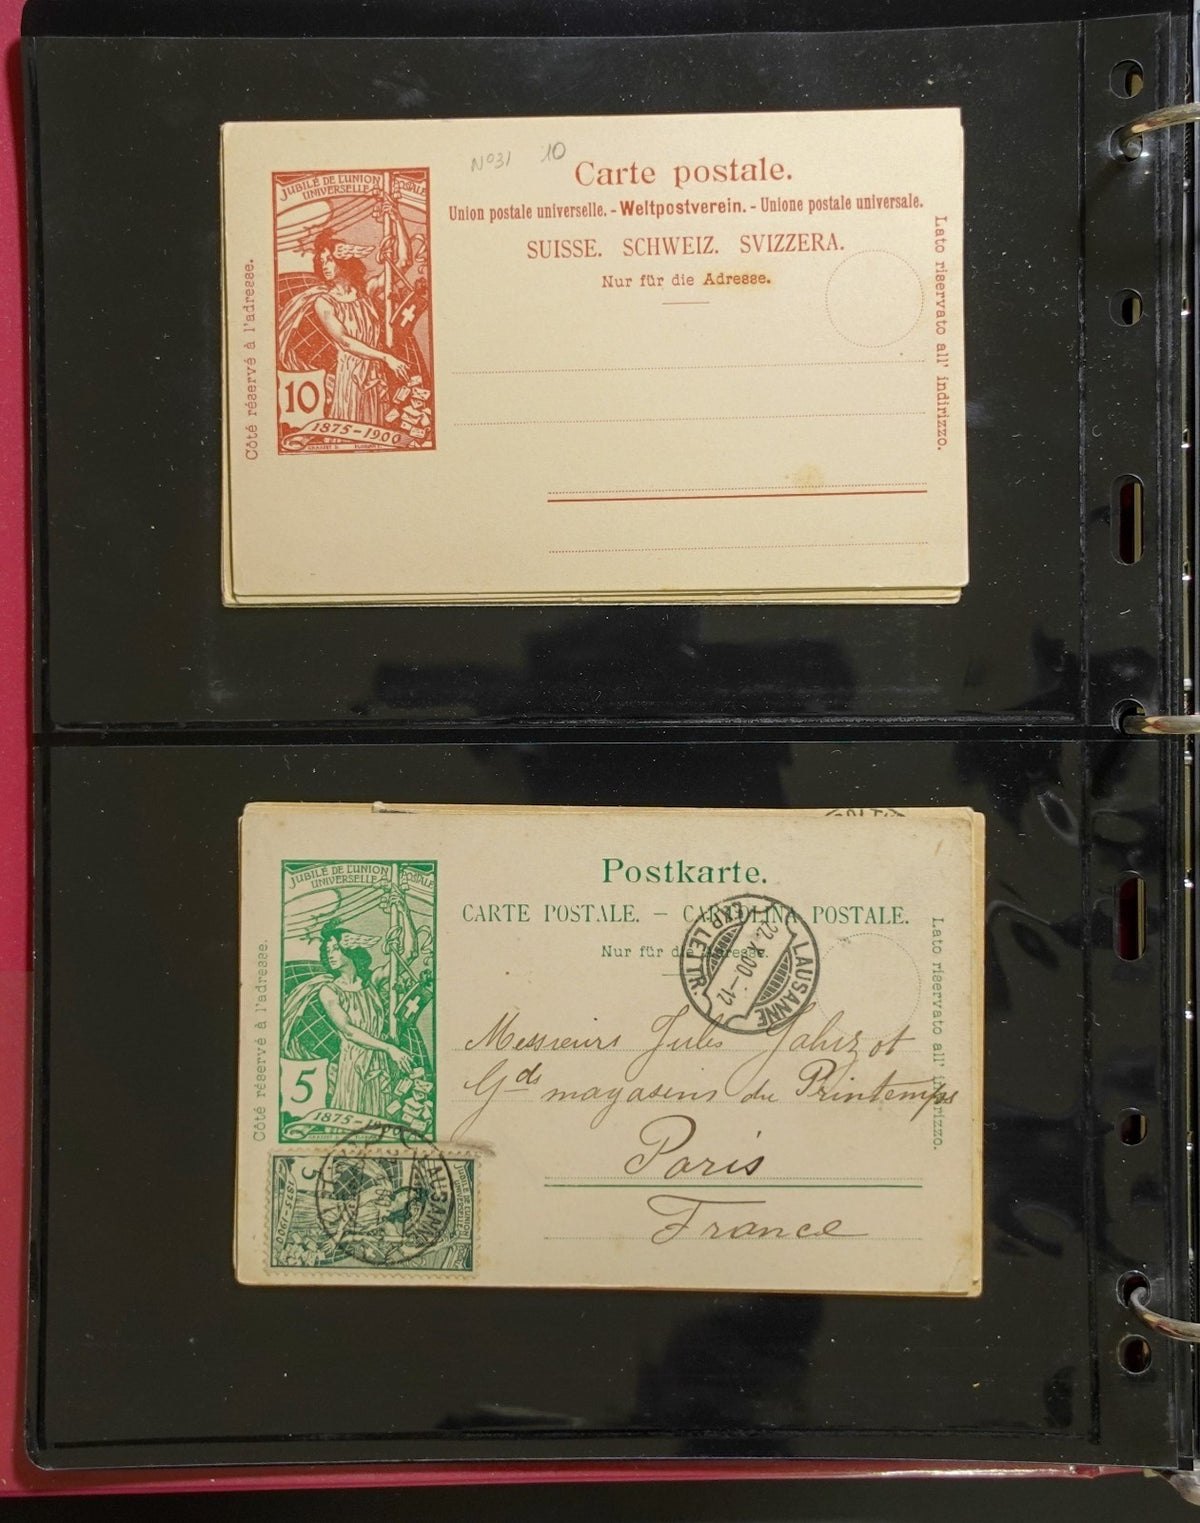 Nº31 10
Carte postale.
Union postale universelle. - Weltpostverein. - Unione postale universale.
SUISSE. SCHWEIZ. SVIZZERA.
Nur für die Adresse.
Côté réservé à l'adresse.
Lato riservato all' indirizzo.
JUBILÉ DE L'UNION POSTALE
UNIVERSELLE
10
1875-1900
Postkarte.
CARTE POSTALE. - CARTOLINA POSTALE.
Nur für die Adresse.
Côté réservé à l'adresse.
Lato riservato all' indirizzo.
JUBILÉ DE L'UNION POSTALE
UNIVERSELLE
5
1875-1900
LAUSANNE
EXP. LETTR.
22. X.00.-12
Messieurs Jules Jaluzot
Gds magasins du Printemps
Paris
France
JUBILÉ DE L'UNION
UNIVERSELLE
5
1875-1900
LAUSANNE